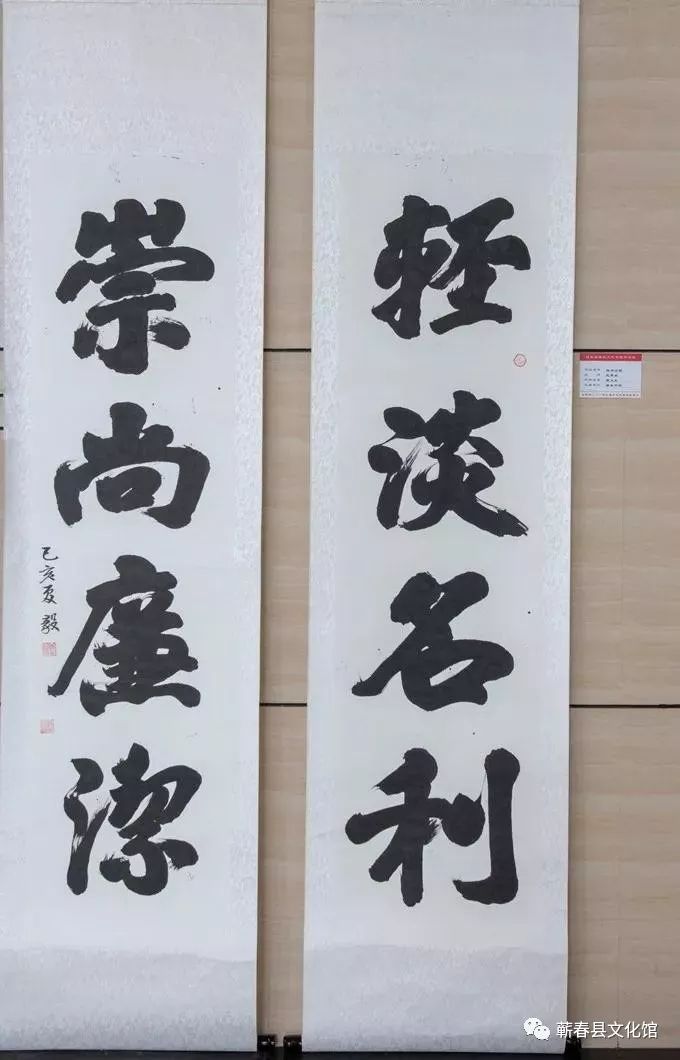 輕淡名利
崇尚廉潔
己亥夏 毅
蕲春县文化馆